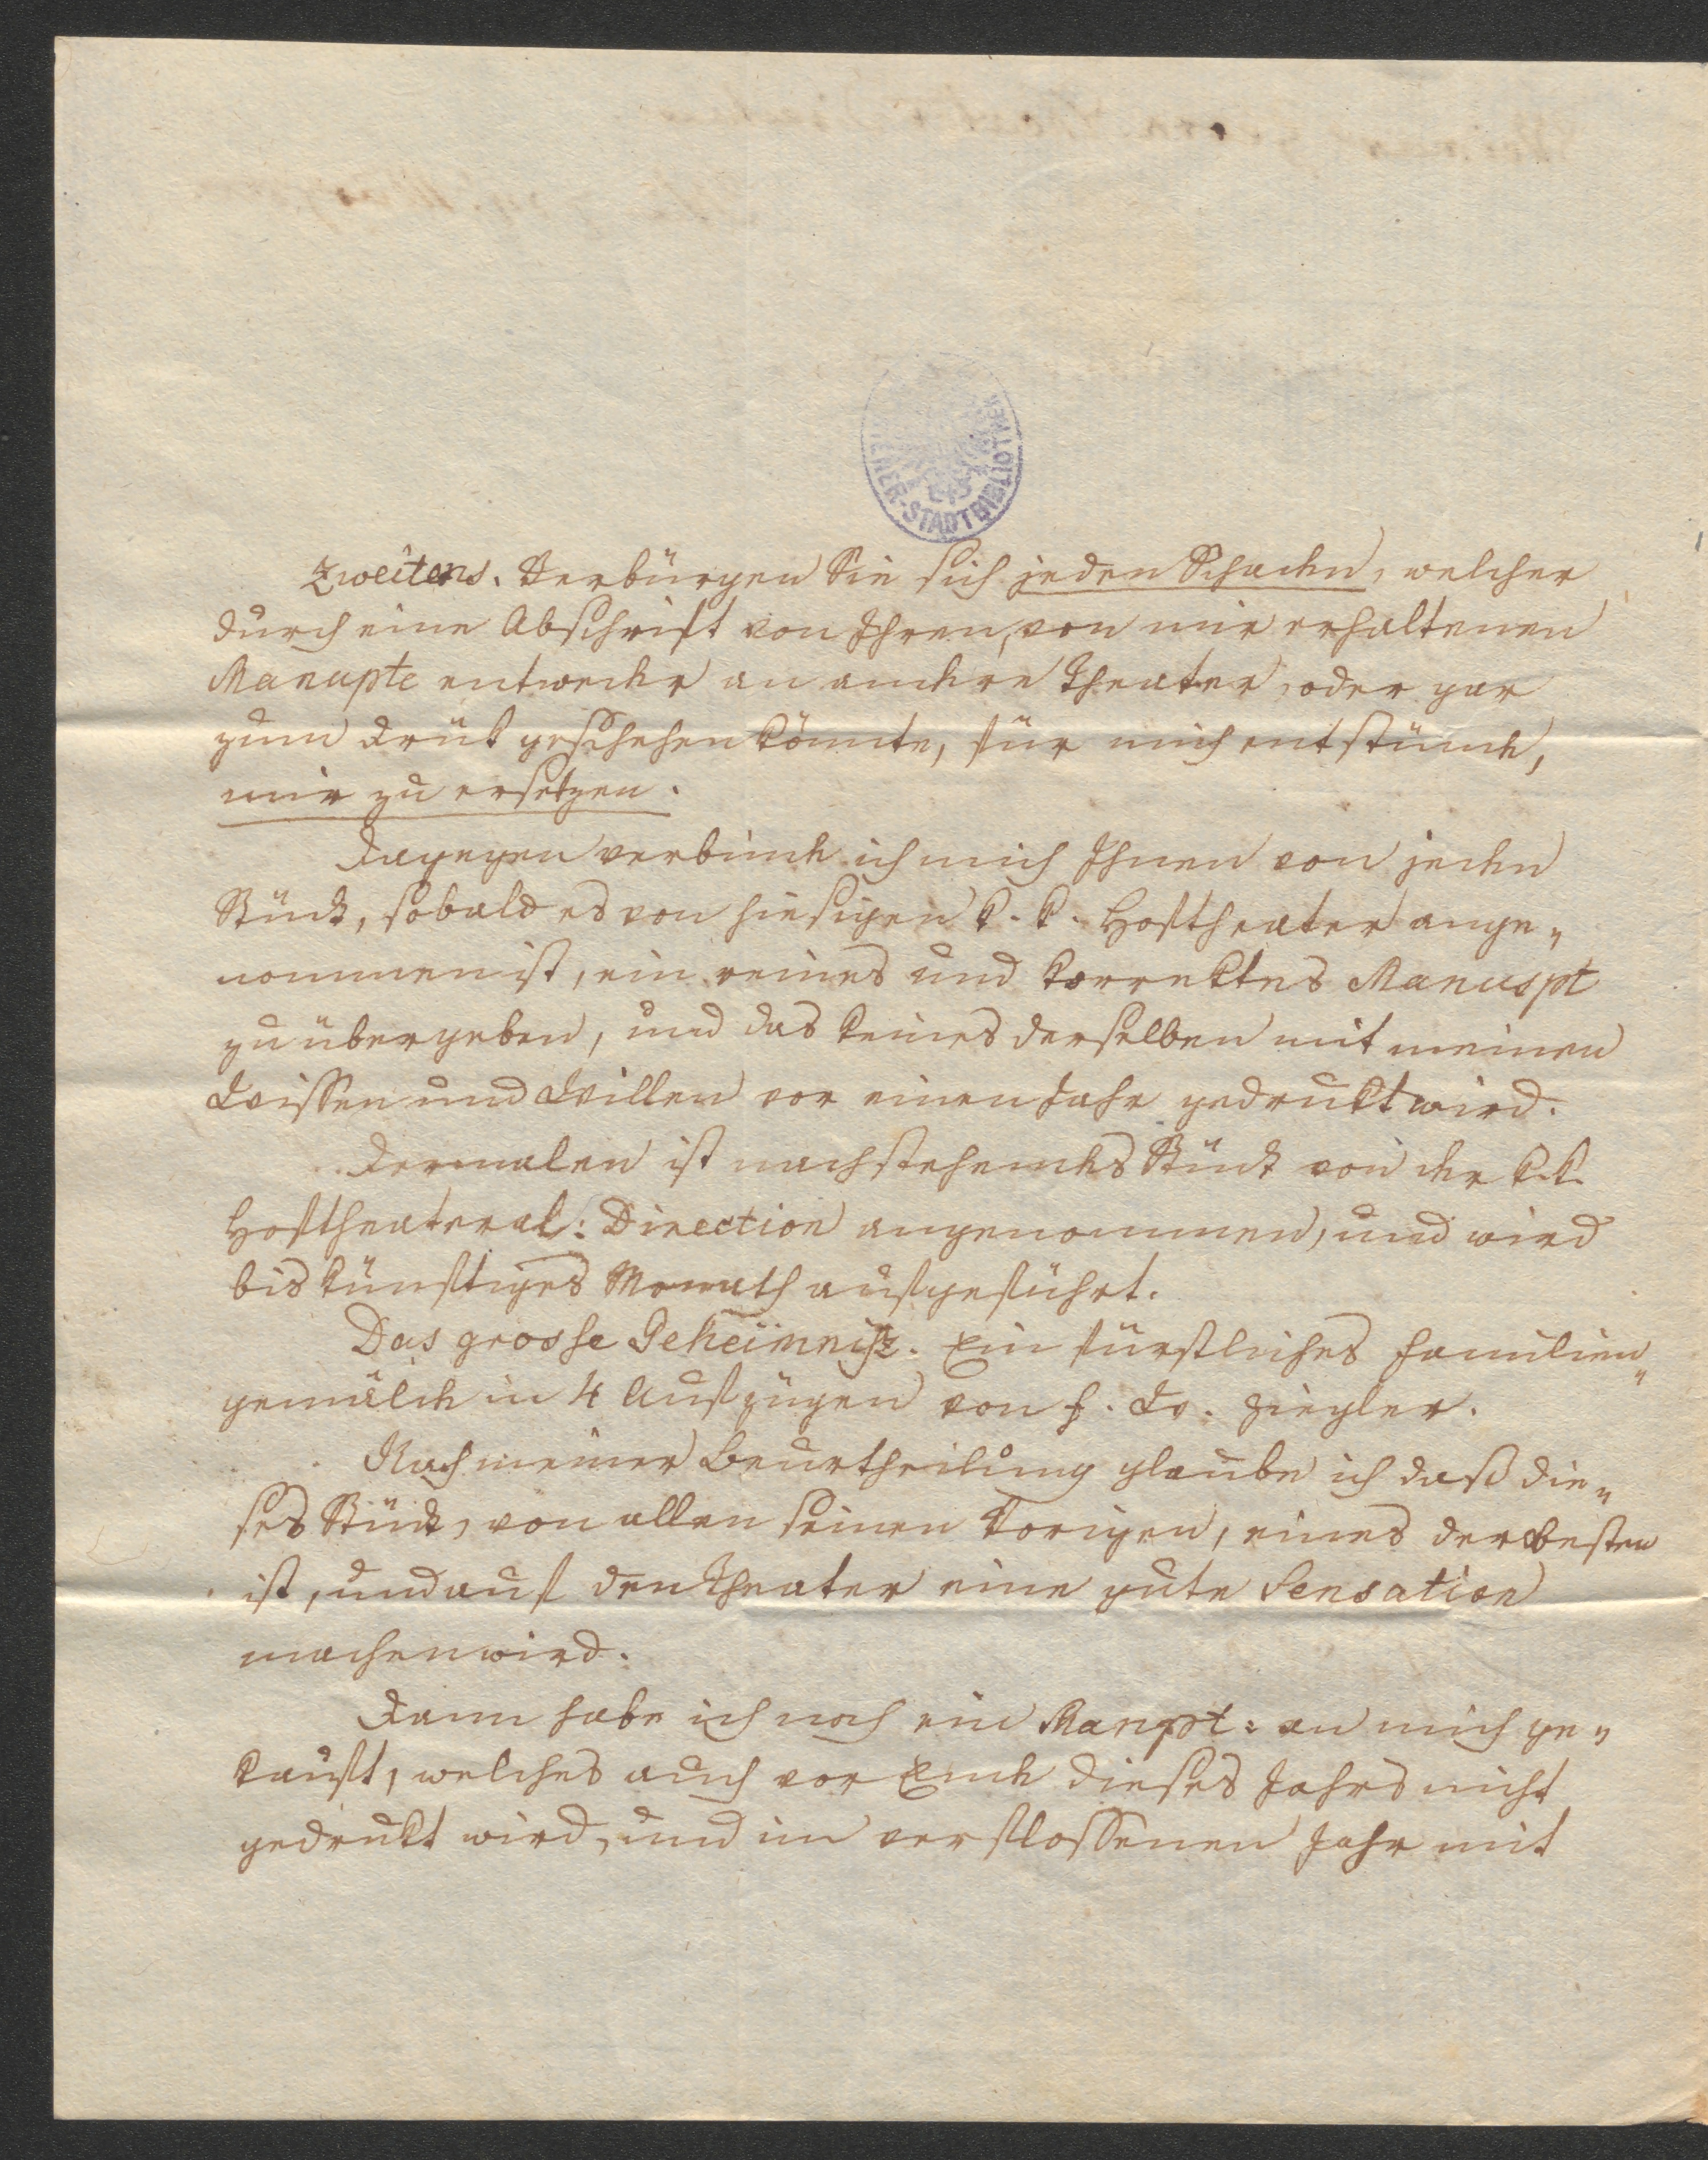 WIENER-STADTBIBLIOTHEK
Zweitens. Verbürgen Sie sich jeden Schaden, welcher
durch eine Abschrift von Ihren, von mir erhaltenen
Manupte entweder an andere Theater, oder gar
zum Druk geschehen könnte, für mich entstünde,
mir zu ersetzen.
Dagegen verbinde ich mich Ihnen von jeden
Stück, sobald es von hiesigen k. k. Hoftheater ange„
nommen ist, ein reines und korrektes Manuspt
zu übergeben, und das keines derselben mit meinen
Wissen und Willen vor einen Jahr gedrukt wird.
Dermalen ist nachstehendes Stück von der k.k.
Hoftheateral: Direction angenommen, und wird
bis künftiges Monath aufgeführt.
Das grosse Geheimniß. Ein fürstliches Familien„
gemälde in 4 Aufzügen von F. W. Ziegler.
Nach meiner Beurtheilung glaube ich daß die„
ses Stück, von allen seinen Vorigen, eines der besten
ist, und auf den Theater eine gute Sensation
machen wird.
Dann habe ich noch ein Manpt: an mich ge„
kauft, welches auch vor Ende dieses Jahrs nicht
gedrukt wird, und im verflossenen Jahr mit